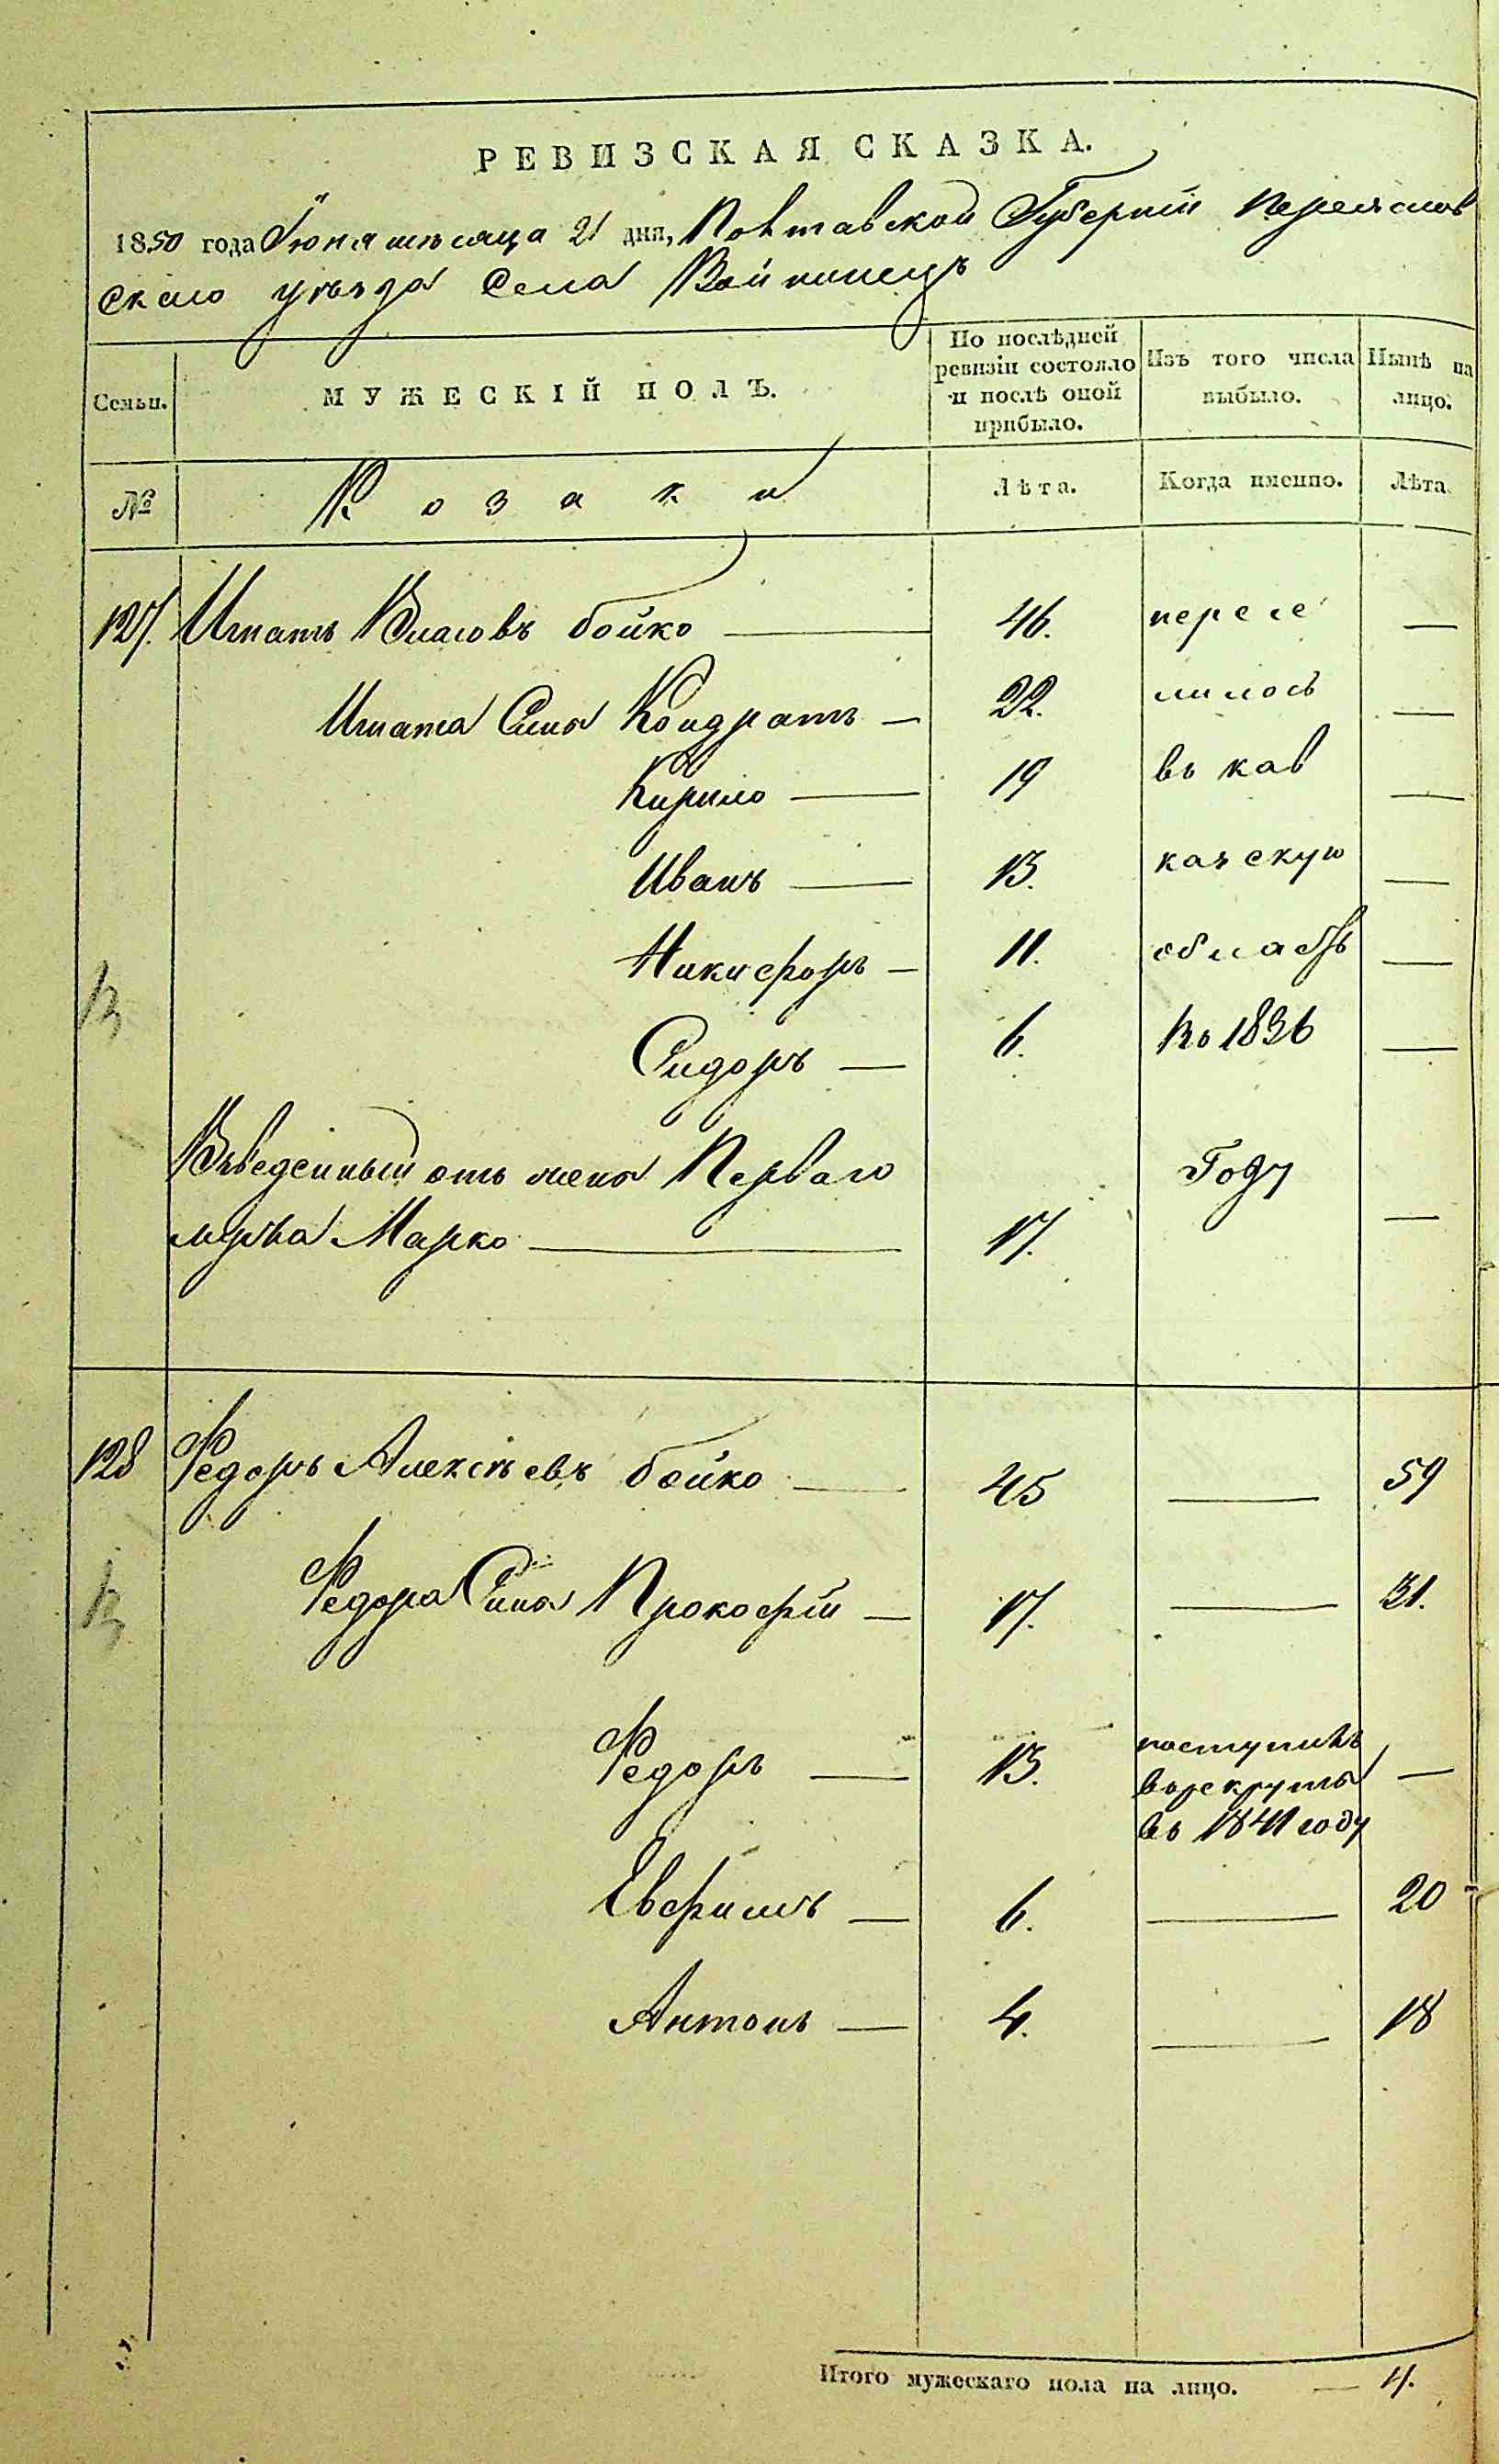 РЕВИЗСКАЯ СКАЗКА.
1850 года Іюня мѣсяца 21 дня, Полтавской Губерніи Переяслов
скаго уѣзда Села Войнинецъ
Семьи. МУЖЕСКІЙ ПОЛЪ. По послѣдней ревизіи состояло и послѣ оной прибыло. Изъ того числа выбыло. Нынѣ на лицо.
№ Козаки Лѣта. Когда именно. Лѣта.
127. Игнатъ Власовъ бойко — 46. пересе —
Игната Сына Кондратъ — 22. лилось —
Кирило — 19 въ кав —
Иванъ — 13. казскую —
Никифоръ — 11. область —
Сидоръ — 6. въ 1836 —
отъ Перваго Году
Марко — 17. —
128 Федоръ Алексѣевъ бойко — 45 — 59
Федора Сына Прокофій — 17. — 31.
Федоръ — 13. поступилъ
въ рекруты —
въ 1841 году
Евфимъ — 6. — 20
Антонъ — 4. — 18
Итого мужескаго пола на лицо. — 4.